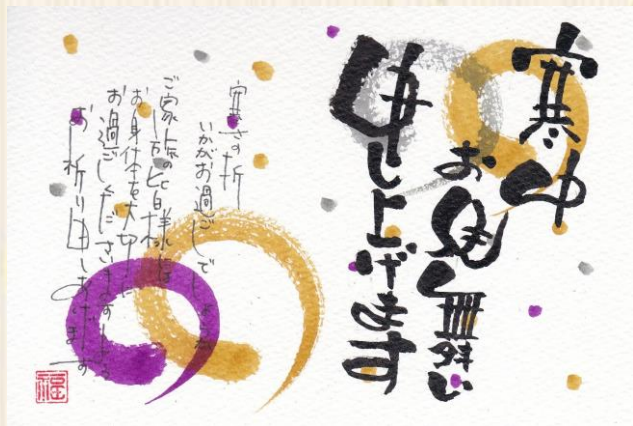 寒中
お見舞い
申し上げます
寒さの折
いかがお過ごしでしょうか
ご家族の皆様には
お身体を大切に
お過ごしくださいますよう
お祈り申しあげます
福